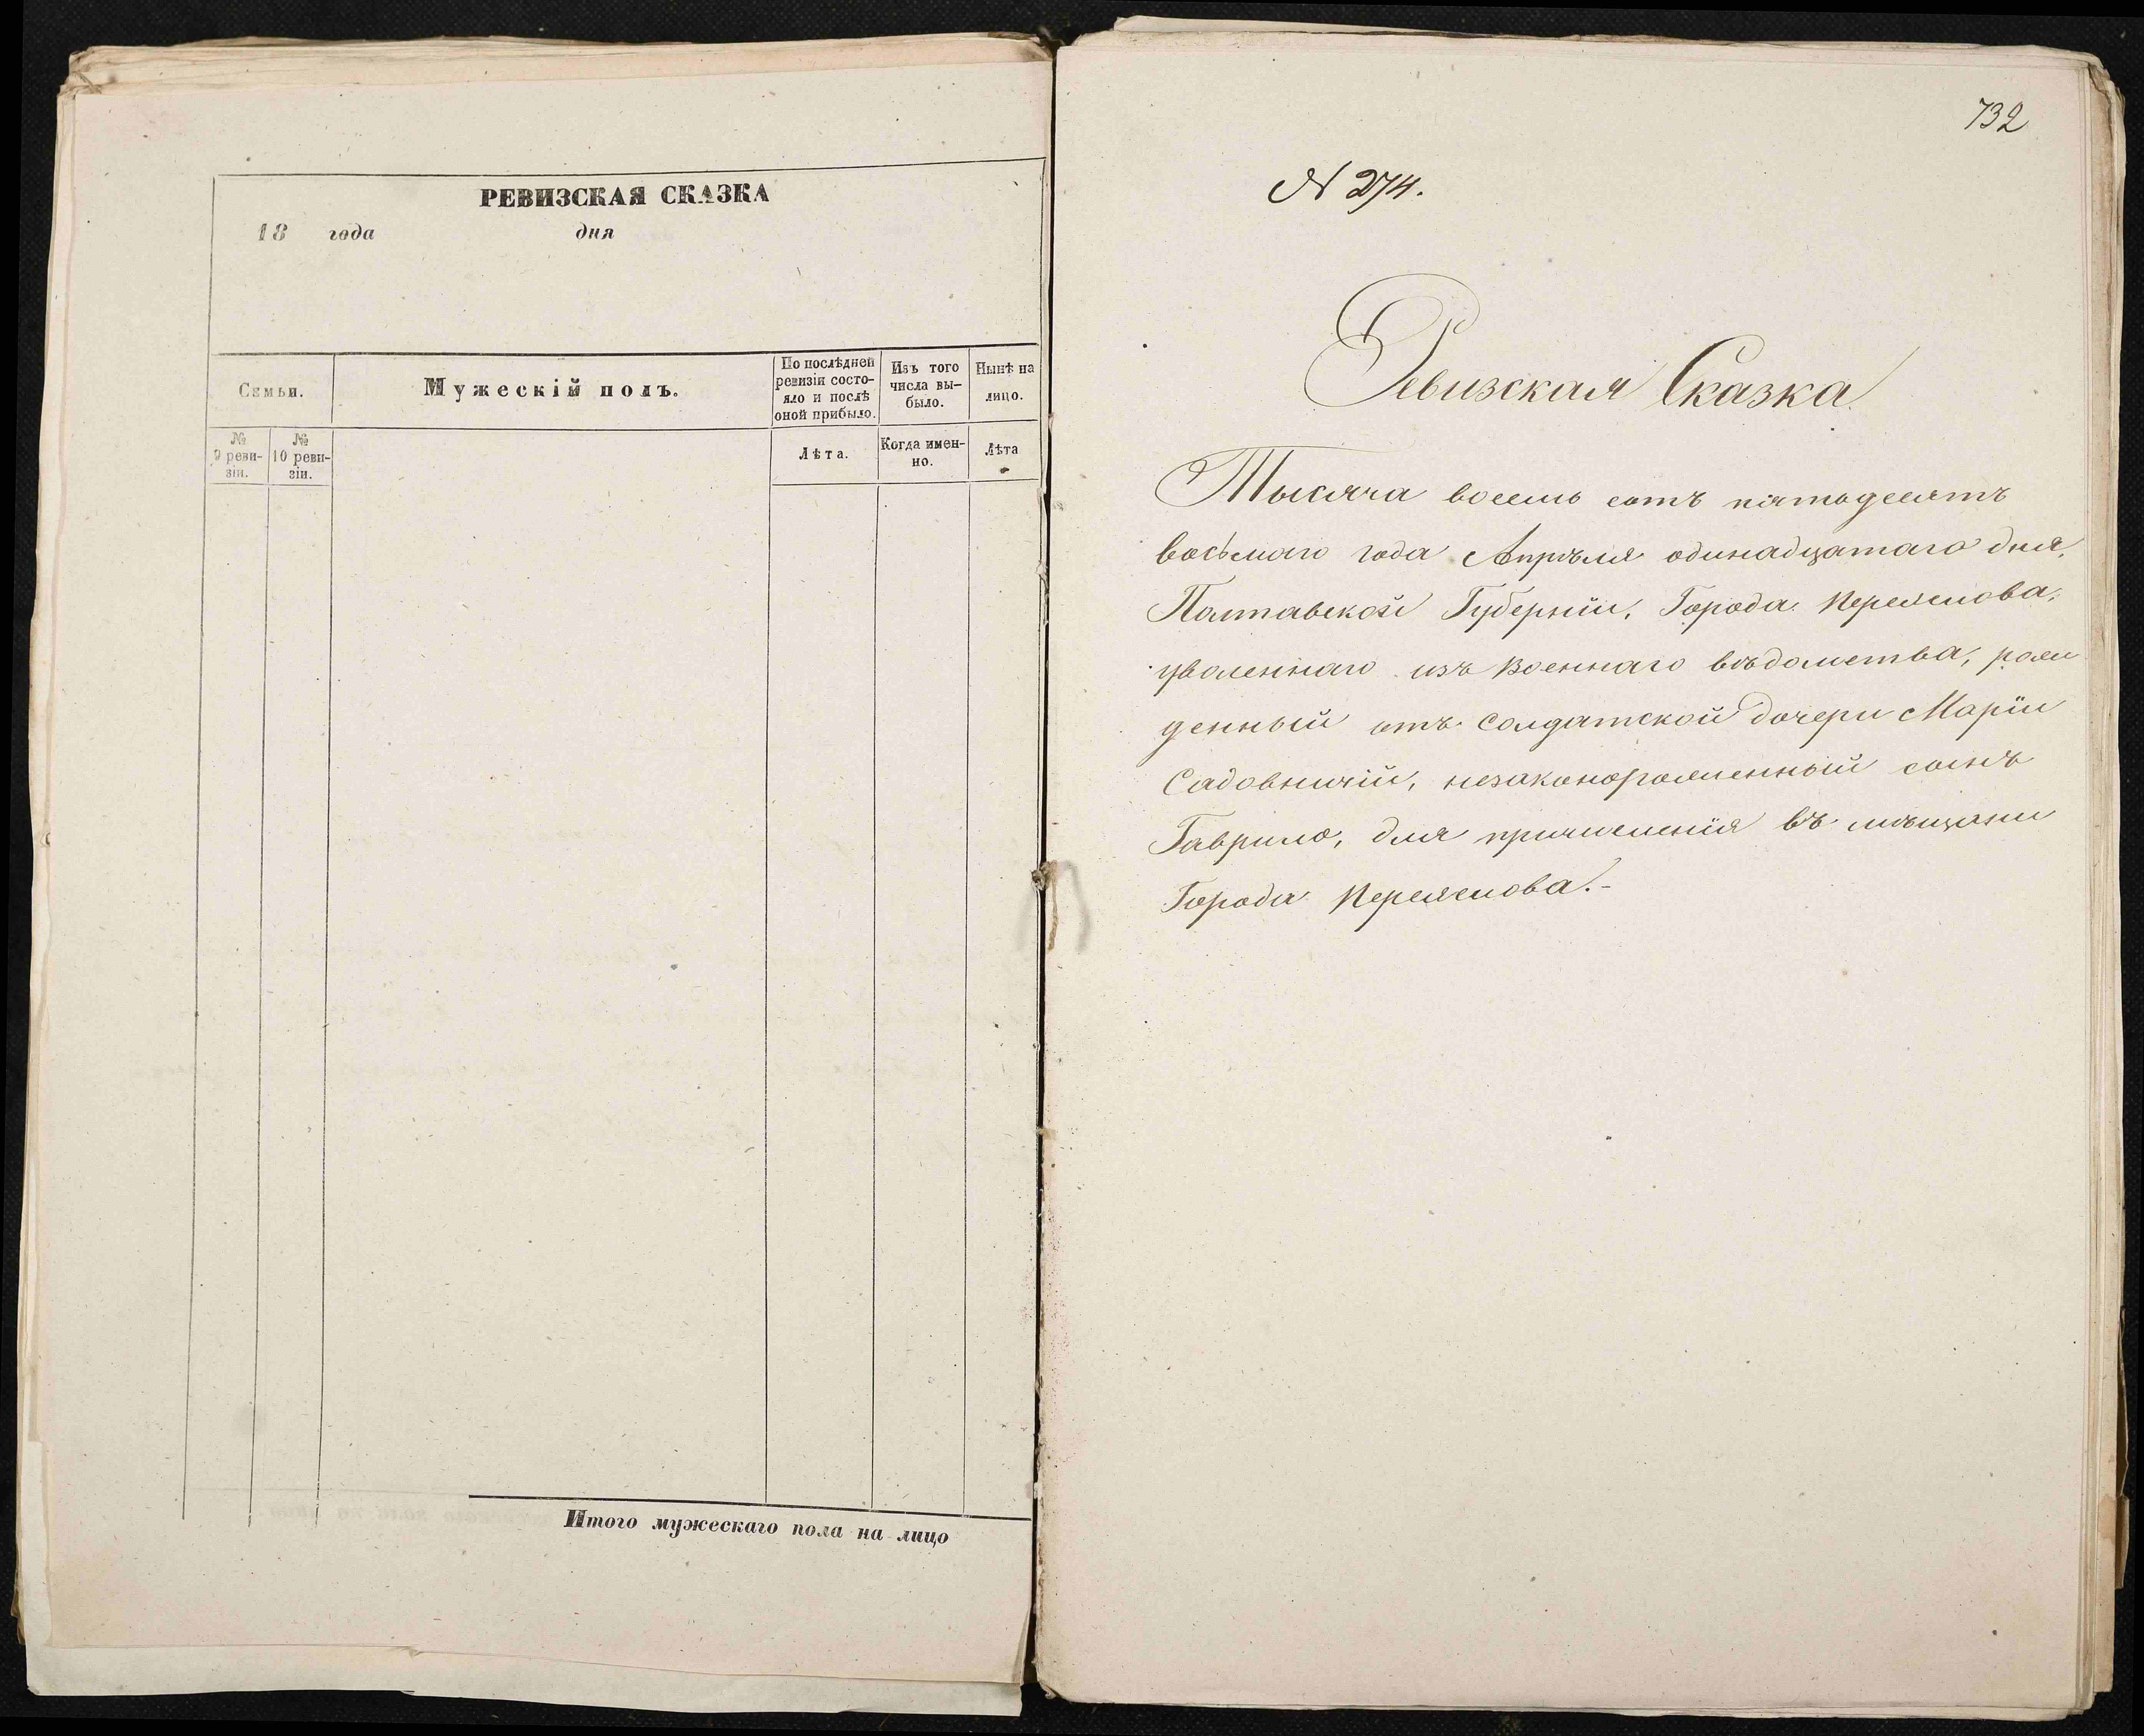 РЕВИЗСКАЯ СКАЗКА
18 года дня
Семьи.
Мужескій полъ.
По послѣдней
ревизіи состо-
яло и послѣ
оной прибыло.
Изъ того
числа вы-
было.
Нынѣ на
лицо.
№
9 реви-
зіи.
№
10 реви-
зіи.
Лѣта.
Когда имен-
но.
Лѣта
Итого мужескаго пола на лицо
732
№ 274.
Ревизская Сказка
Тысяча восемь сотъ пятьдесятъ
восьмаго года Апрѣля одинадцатаго дня,
Полтавской Губерніи, Города Переяслова,
уволеннаго изъ Военнаго вѣдомства, рож
денный отъ Солдатской дочери Маріи
Садовничій, незаконорожденный сынъ
Гаврило, для причисленія въ мѣщани
Города Переяслова.-